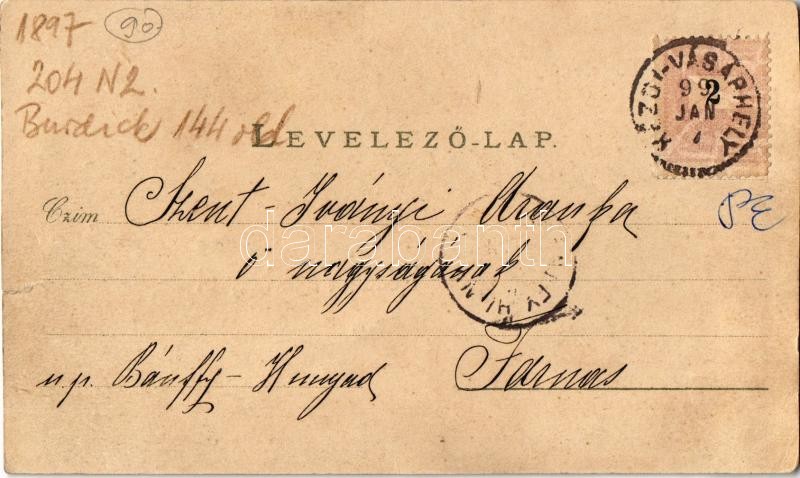 1897 90.
204 N2.
Burdick 144 old
LEVELEZŐ-LAP.
KÉZDI-VÁSÁRHELY
99
JAN
2
Czim Szent-Iványi Aranka
ő nagyságának
darabanth
PE
u.p. Bánffy-Hunyad Farnas